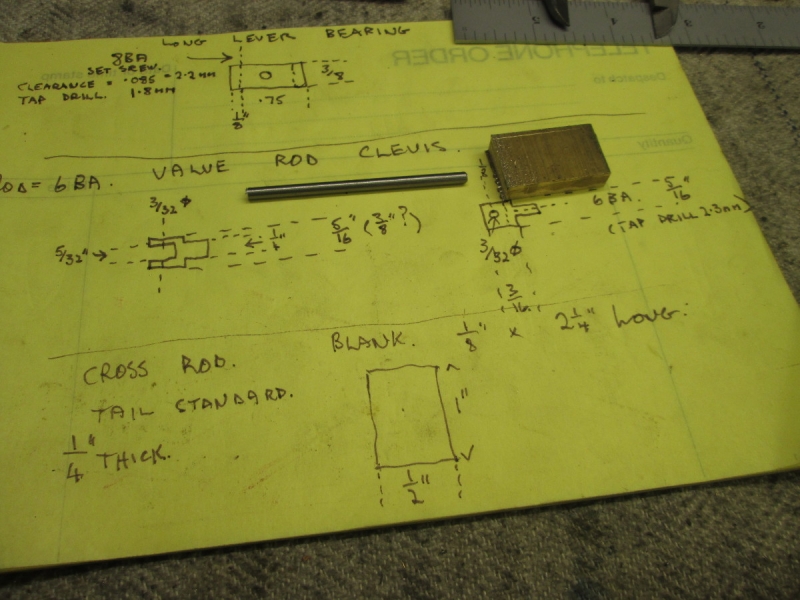 LONG LEVER BEARING
8BA
SET SCREW.
CLEARANCE = .085 = 2.2MM
TAP DRILL. 1.8MM
3/8
.75
1/8"
VALVE ROD CLEVIS.
ROD = 6BA.
3/32 ⌀
5/32"
1/4"
5/16" (3/8"?)
6BA. 5/16"
(TAP DRILL 2.3MM)
3/32 ⌀
3/16"
CROSS ROD. BLANK. 1/8" x 2 1/4" LONG:
TAIL STANDARD.
1/4" THICK.
1"
1/2"
TELEPHONE ORDER
Despatch to
Quantity
5
4
3
2